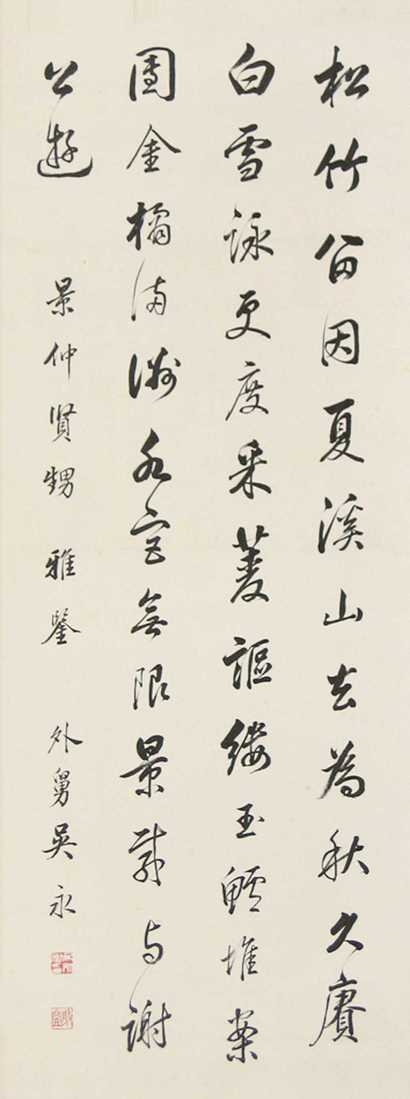 松竹留因夏溪山去為秋久賡
白雪詠更度采菱謳縷玉鱸堆案
團金橘滿洲水宮無限景載与謝
公遊
景仲賢甥 雅鑒 外舅吳永